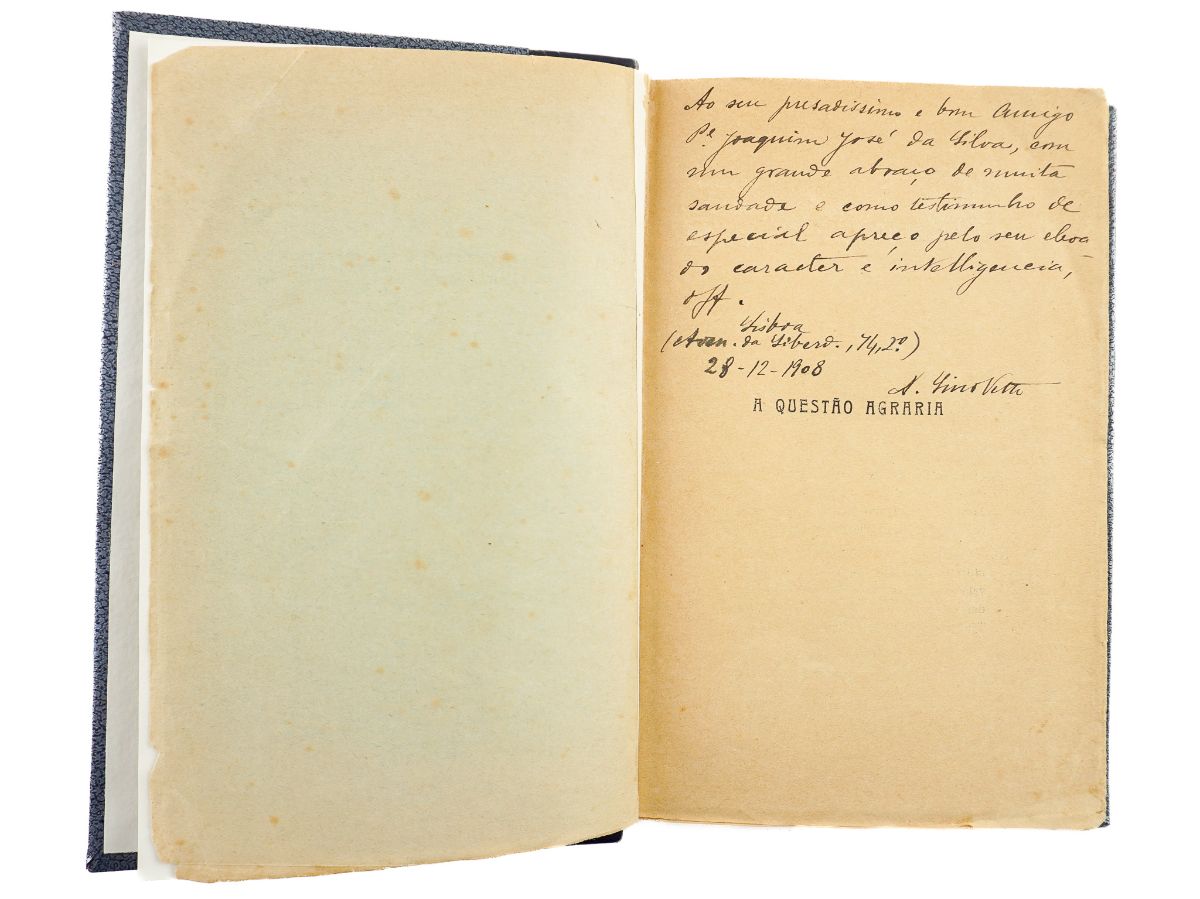 Ao seu presadissimo e bom Amigo
Pe. Joaquim José da Silva, com
um grande abraço de muita
saudade e como testimunho de
especial apreço pelo seu eleva
do caracter e intelligencia,
off.
Lisboa
(Aven. da Liberd., 74, 2º)
28-12-1908
A. Lino Netto
A QUESTÃO AGRARIA